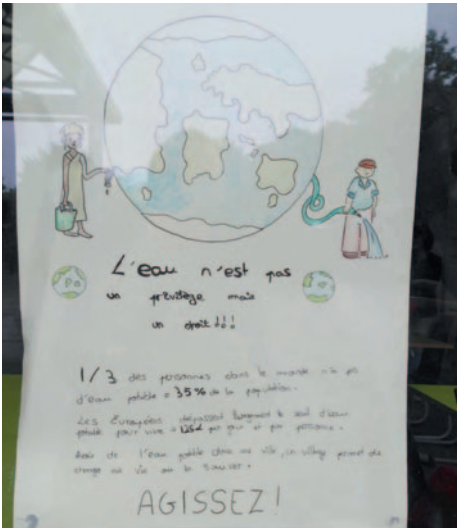 L'eau n'est pas
un privilège mais
un droit!!!
1/3 des personnes dans le monde n'a pas
d'eau potable = 35% de la population.
Les Européens dépassent largement le seuil d'eau
potable pour vivre = par jour et par personne.
Avoir de l'eau potable dans sa ville, un village permet de
changer sa vie ou la sauver.
AGISSEZ!